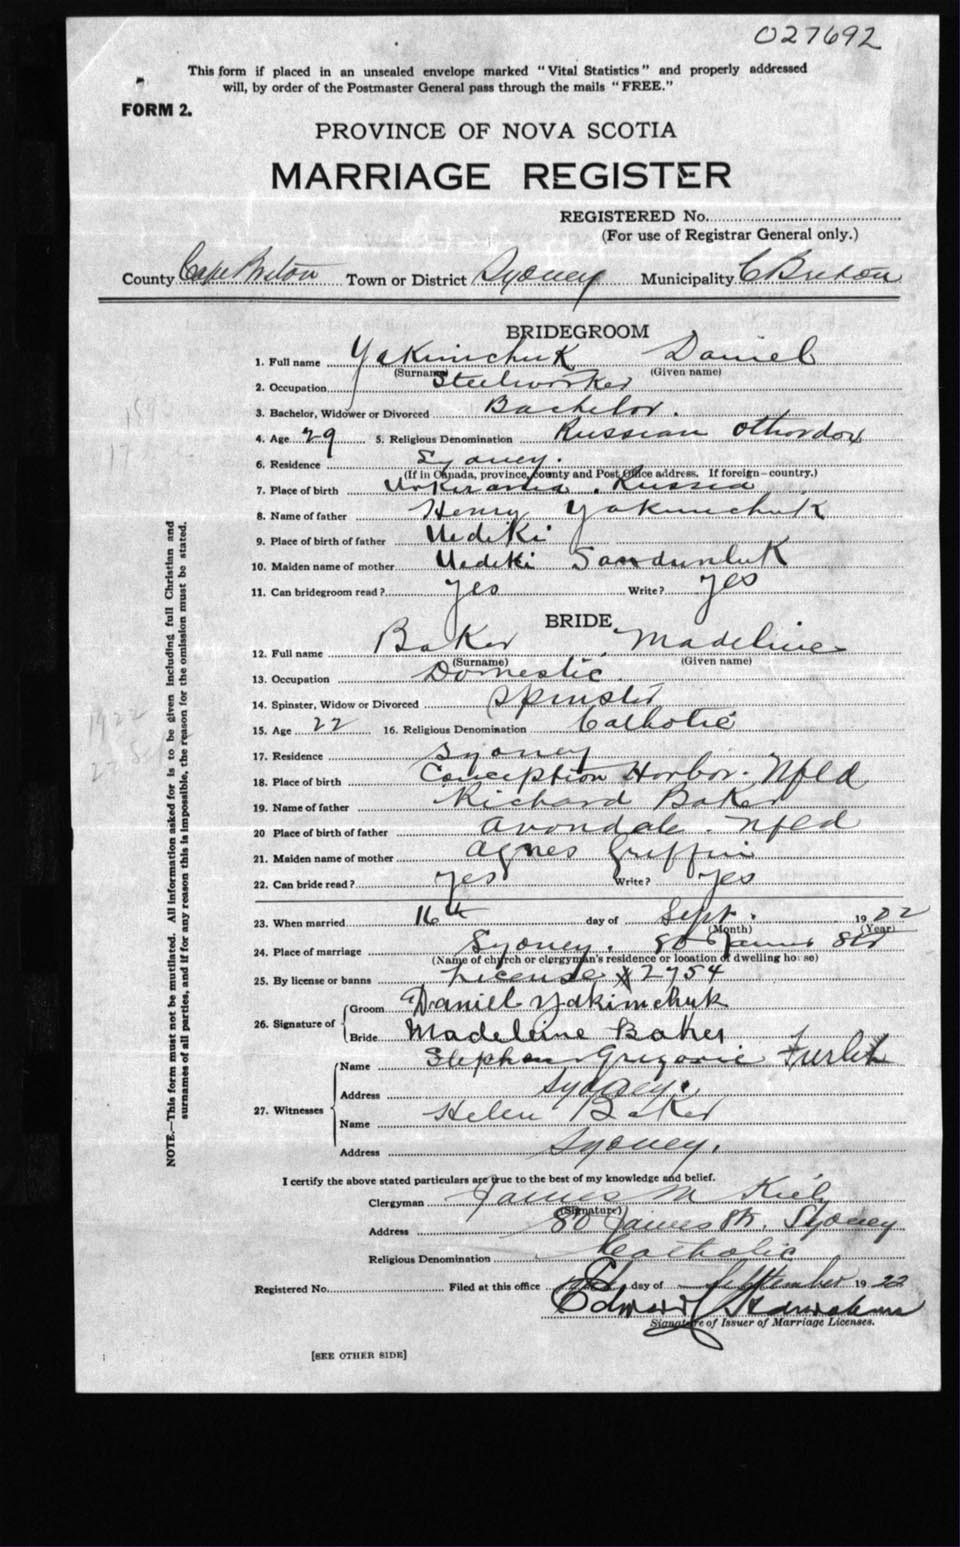 027692
This form if placed in an unsealed envelope marked "Vital Statistics" and properly addressed
will, by order of the Postmaster General pass through the mails "FREE."
FORM 2.
PROVINCE OF NOVA SCOTIA
MARRIAGE REGISTER
REGISTERED No.
(For use of Registrar General only.)
County Cape Breton Town or District Sydney Municipality C Breton
BRIDEGROOM
1. Full name Yakimchuk Daniel
(Surname) (Given name)
2. Occupation Steelworker
3. Bachelor, Widower or Divorced Bachelor.
4. Age 29 5. Religious Denomination Russian Othordox
6. Residence Sydney.
(If in Canada, province, county and Post Office address. If foreign—country.)
7. Place of birth Russia
8. Name of father Henry Yakimchuk
9. Place of birth of father Uediki
10. Maiden name of mother Uediki
11. Can bridegroom read? yes Write? yes
BRIDE
12. Full name Baker, Madeline
(Surname) (Given name)
13. Occupation Domestic
14. Spinster, Widow or Divorced Spinster
15. Age 22 16. Religious Denomination Catholic
17. Residence Sydney
18. Place of birth Conception Harbor. Nfld
19. Name of father Richard Baker
20 Place of birth of father Avondale. Nfld
21. Maiden name of mother Agnes Griffin
22. Can bride read? yes Write? yes
23. When married 16th day of Sept. 1922
(Month) (Year)
24. Place of marriage Sydney. 80 James St
(Name of church or clergyman's residence or location of dwelling house)
25. By license or banns License # 2754
26. Signature of Groom Daniel Yakimchuk
Bride Madeleine Baker
27. Witnesses Name Stephen Gregorie
Address Sydney.
Name Helen Baker
Address Sydney.
I certify the above stated particulars are true to the best of my knowledge and belief.
Clergyman James M Kiely
(Signature)
Address 80 James St. Sydney
Religious Denomination Catholic
Registered No. Filed at this office day of September 1922
Edward
Signature of Issuer of Marriage Licenses.
[SEE OTHER SIDE]
NOTE.—This form must not be mutilated. All information asked for is to be given including full Christian and
surnames of all parties, and if for any reason this is impossible, the reason for the omission must be stated.